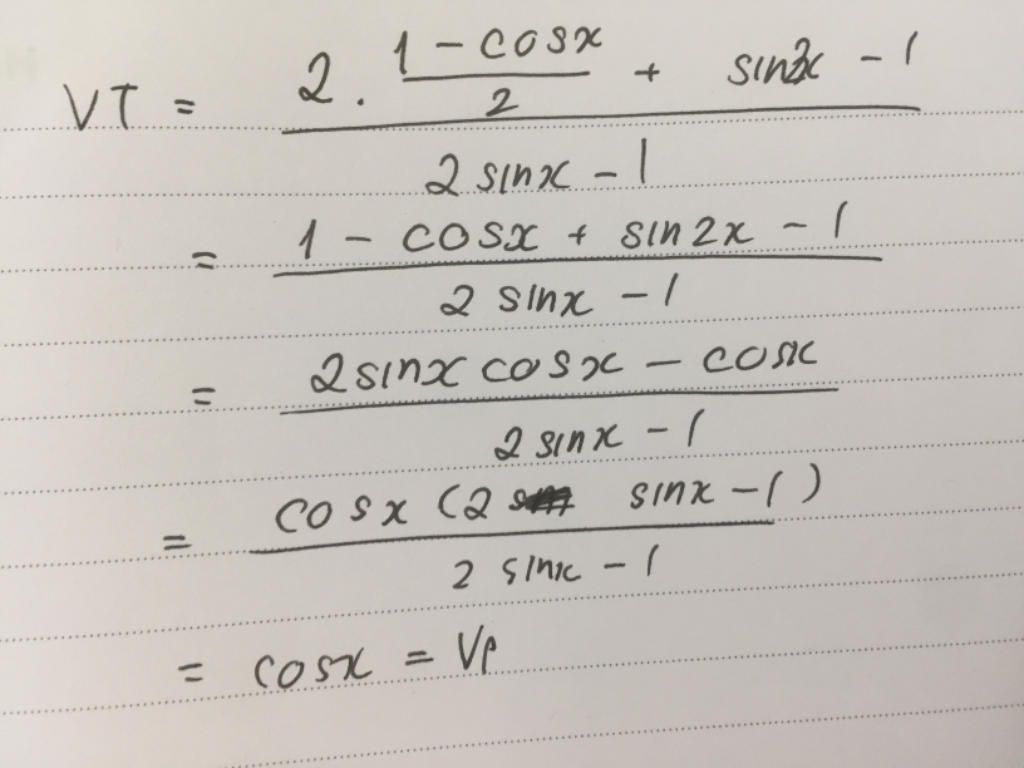 VT = \frac{2 \cdot \frac{1 - cosx}{2} + sin2x - 1}{2 sinx - 1}
= \frac{1 - cosx + sin2x - 1}{2 sinx - 1}
= \frac{2sinx cosx - cosx}{2 sinx - 1}
= \frac{cosx (2 sinx - 1)}{2 sinx - 1}
= cosx = VP